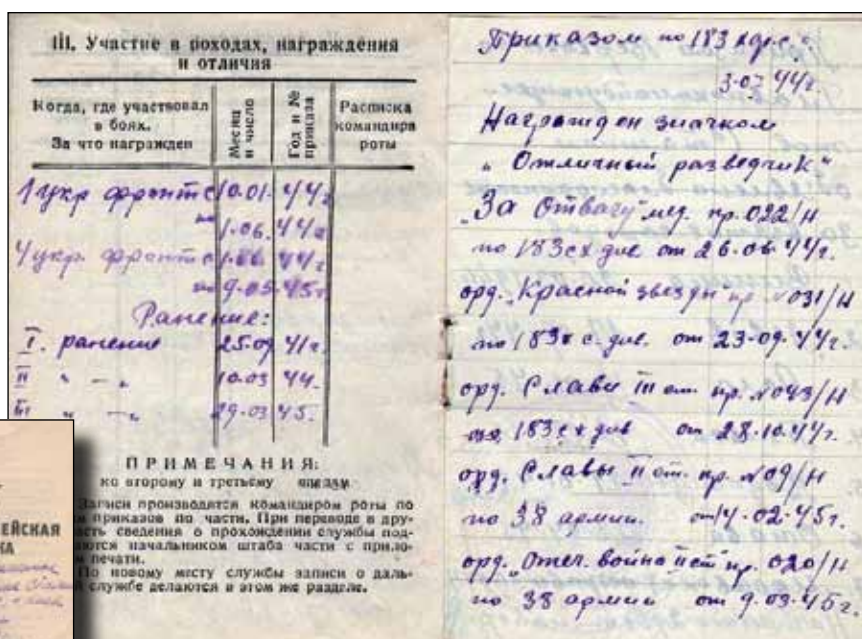 III. Участие в походах, награждения
и отличия
Когда, где участвовал
в боях.
За что награжден
Месяц
и число
Год и №
приказа
Расписка
командира
роты
1 укр фронт с 10.01. 44г
по 1.06. 44г
4 укр. фронт с 1.06 44г
по 9.05 45г
Ранение:
I. ранение 25.09 41г.
II " — " 10.03 44.
III " — " 29.03 45.
ПРИМЕЧАНИЯ:
ко второму и третьему
Записи производятся командиром роты по
приказов по части. При переводе в дру-
сть сведения о прохождении службы под-
ются начальником штаба части с прило-
м печати.
По новому месту службы записи о даль-
службе делаются в этом же разделе.
Приказом по 183
3.07 44г.
Награжден значком
„Отличный разведчик“
„За Отвагу" мед. пр. 022/Н
по 183 сх див от 26.06.44г.
орд. „Красной звезды" пр. №031/Н
по 183 с. див. от 23.09.44г.
орд. Славы III ст пр. №043/Н
по 183 сх див от 28.10.44г.
орд. Славы II ст. пр. №09/Н
по 38 армии. от 14.02.45г.
орд. „Отеч. война II ст пр. 020/Н
по 38 армии от 9.03.45г.
ЕЙСКАЯ
КА